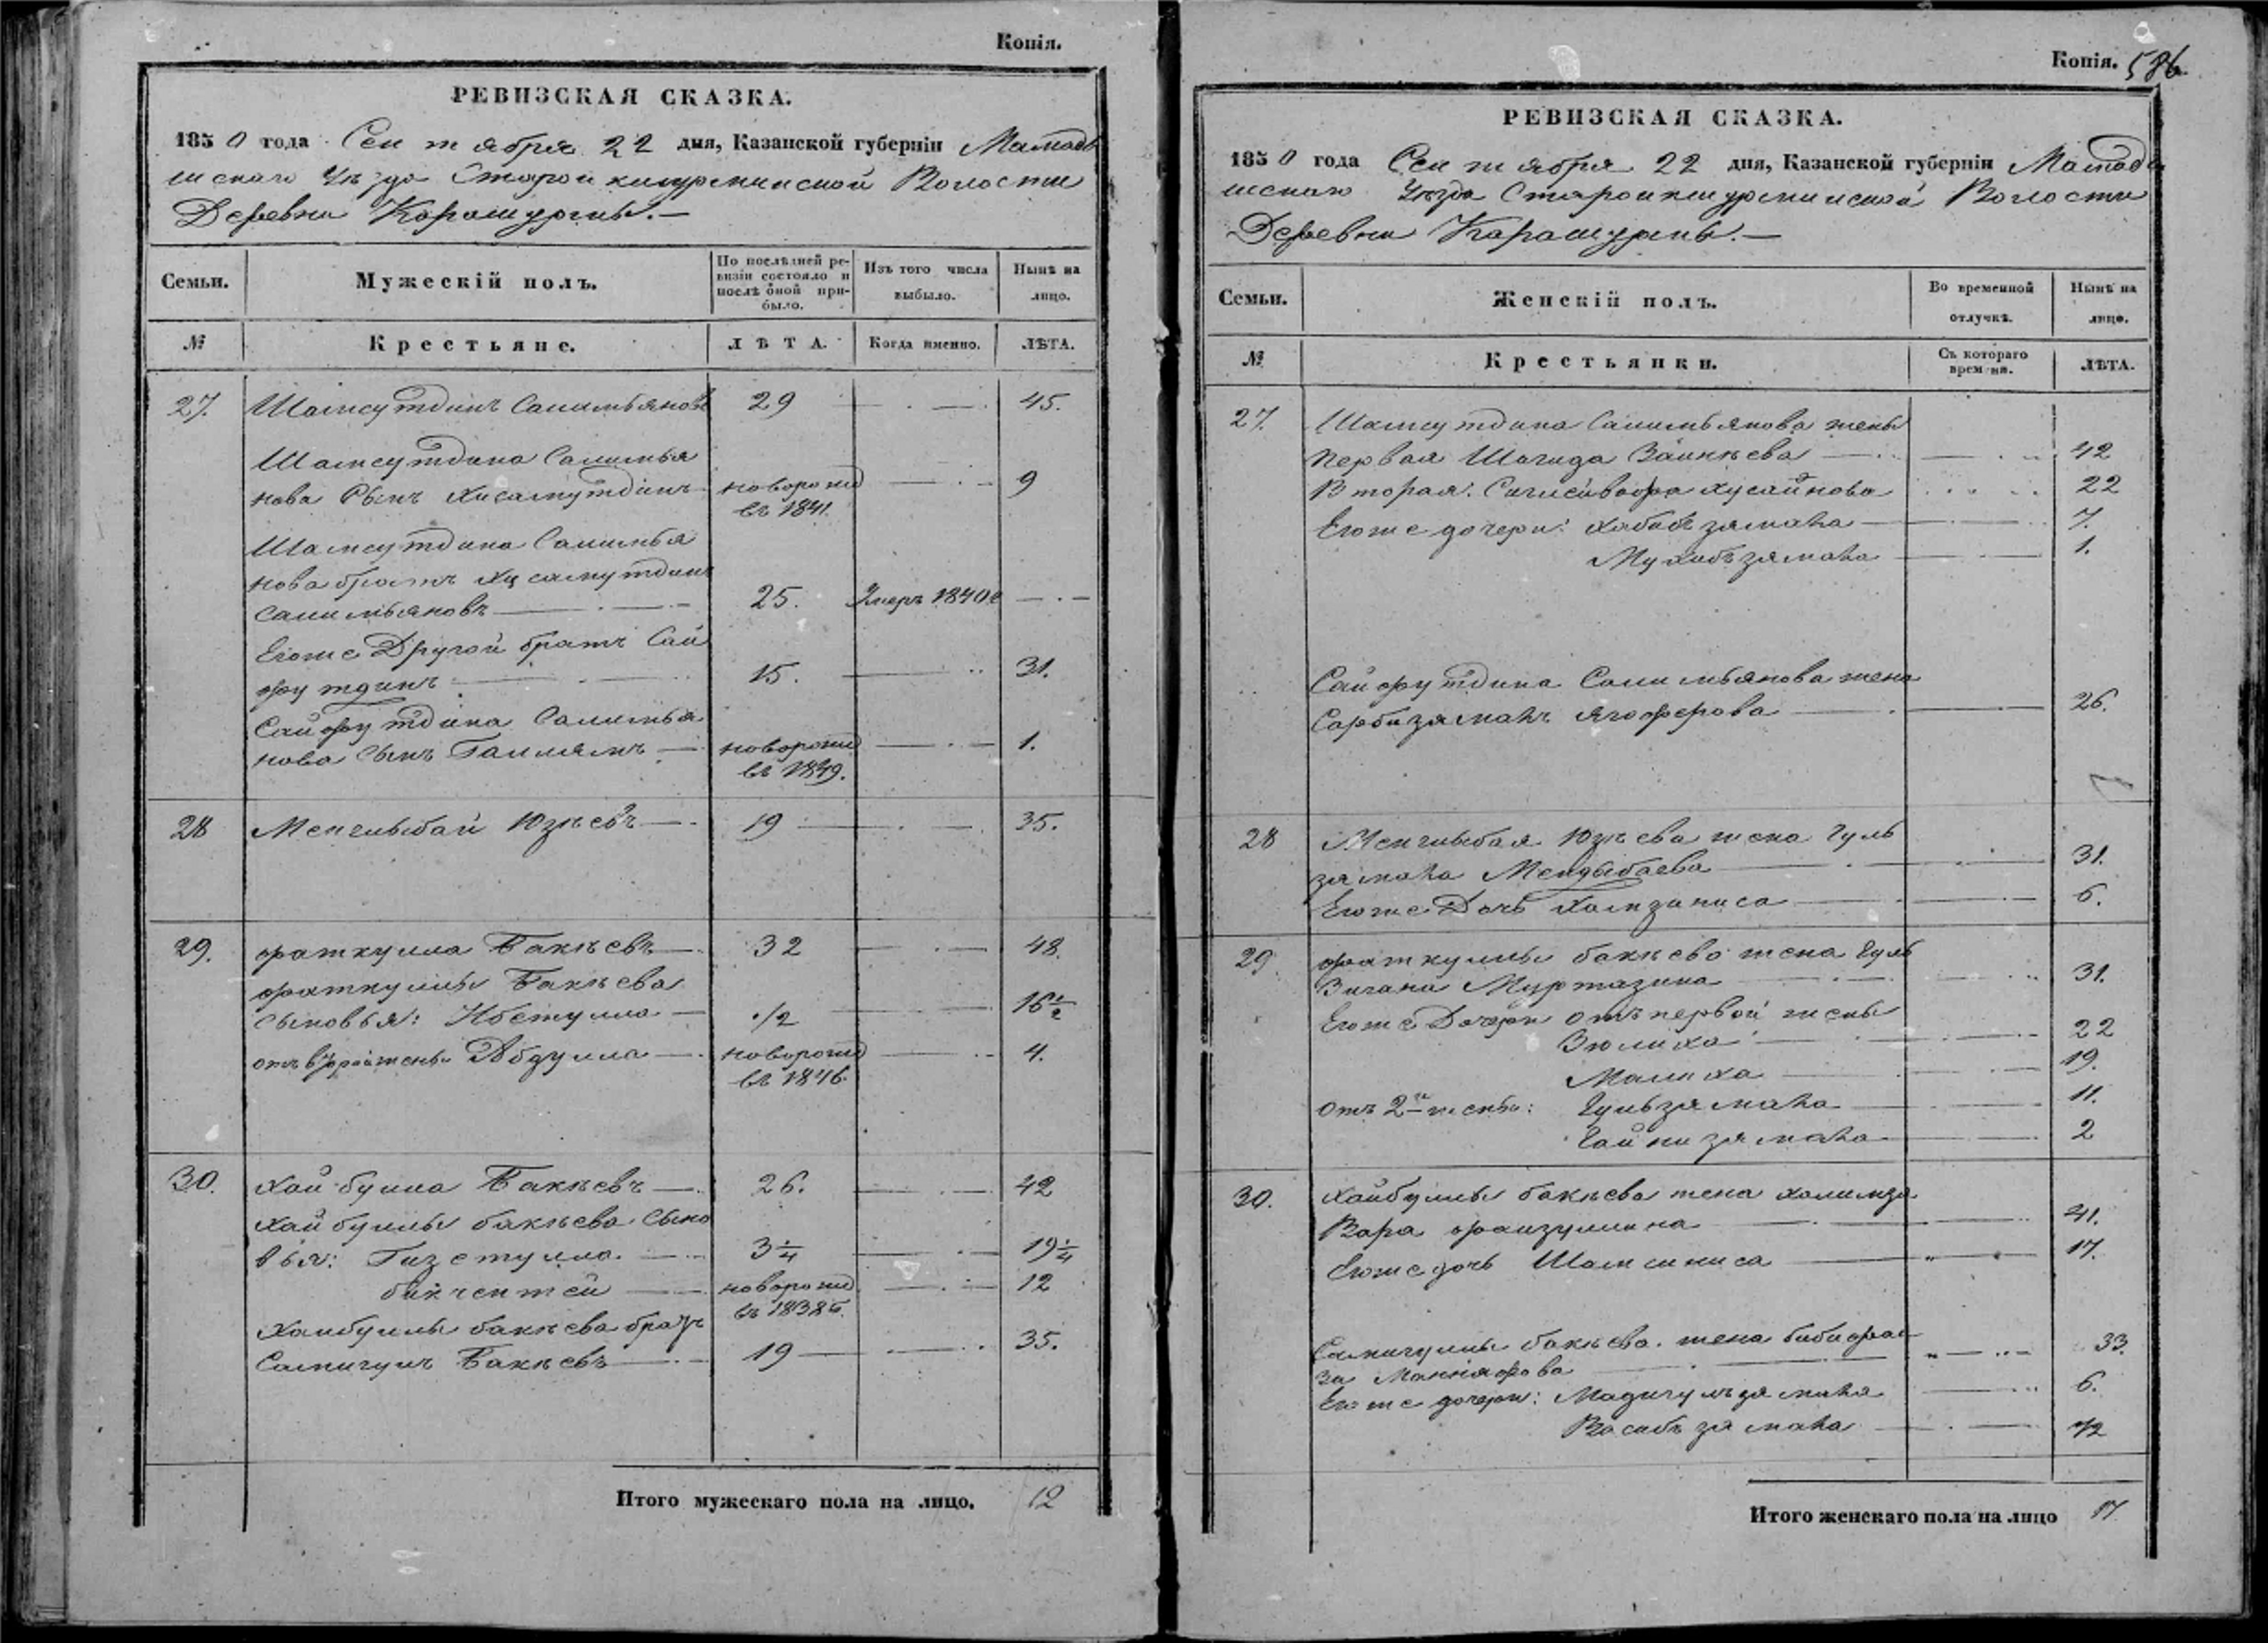 Копія.
РЕВИЗСКАЯ СКАЗКА.
1850 года Сентября 22 дня, Казанской губерніи Мамады
шскаго Уѣзда Старой кшурминской Волости
Деревни Карашурмы.—
Семьи.
Мужескій полъ.
По послѣдней ре-
визіи состояло и
послѣ оной при-
было.
Изъ того числа
выбыло.
Нынѣ на
лицо.
№
Крестьяне.
ЛѢТА.
Когда именно.
ЛѢТА.
27. Шамсутдинъ Салимьяновъ 29 — 45.
Шамсутдина Салимья
нова Сынъ Хисамутдинъ новорожд — 9
въ 1841.
Шамсутдина Салимья
нова братъ Хисамутдинъ
Салимьяновъ — 25. Умеръ 1840 —
Егоже Другой братъ Сай
футдинъ — 15. — 31.
Сайфутдина Салимья
нова Сынъ Галлямъ — новорожд — 1.
въ 1849.
28 Менглыбай Юзѣевъ — 19 — 35.
29. Фаткулла Бакѣевъ — 32 — 48.
Фаткуллы Бакѣева
сыновья: Ибетулла — 1/2 — 16 1/2
отъ второй жены Абдулла — новорожд — 4.
въ 1846.
30. Хайбулла Бакѣевъ — 26. — 42
Хайбуллы бакѣева Сыно
вья: Гизетулла — 3 1/4 — 19 1/4
бикчентей — новорожд — 12
въ 1838
Хайбуллы бакѣева братъ
Самигулъ Бакѣевъ — 19 — 35.
Итого мужескаго пола на лицо. 12
Копія. 586
РЕВИЗСКАЯ СКАЗКА.
1850 года Сентября 22 дня, Казанской губерніи Мамады
шскаго Уѣзда Старой кшурминской Волости
Деревни Карашурмы.—
Семьи.
Женскій полъ.
Во временной
отлучкѣ.
Нынѣ на
лицо.
№
Крестьянки.
Съ котораго
времени.
ЛѢТА.
27. Шамсутдина Салимьянова жены
первая Шагида Заинѣева — 42
Вторая: Хусаинова 22
Егоже дочери: Хабибзямана — 7.
Мухибзямана — 1.
Сайфутдина Салимьянова жена
Сарбизяманъ Ягоферова — 26.
28 Менглыбая Юзѣева жена Гуль
зямана Мендыбаева — 31.
Егоже Дочь Хамзиниса — 6.
29 Фаткуллы бакѣева жена Гуль
Зигана Муртазина — 31.
Егоже Дочери отъ первой жены
Зюлиха — 22
Малиха — 19.
отъ 2й жены: Гульзямана — 11.
Гайнизямана — 2
30. Хайбуллы бакѣева жена Халимза
Вара файзуллина — 41.
Егоже дочь Шамсиниса — 17.
Самигуллы бакѣева жена бибифай
за Маннафова — 33.
Егоже дочери: Мадигульзямана — 6.
Васабзямана — 1/2
Итого женскаго пола на лицо 17